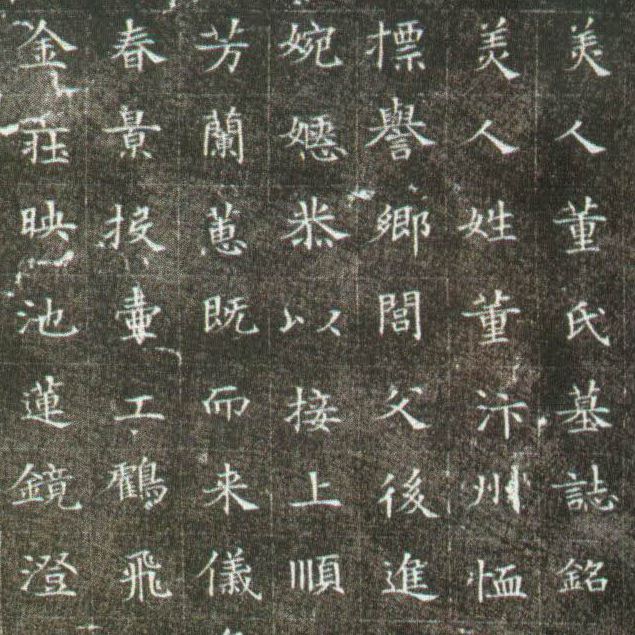 美人董氏墓誌銘
美人姓董汴州恤
摽譽鄉閭父後進
婉嬺恭以接上順
芳蘭蕙既而来儀
春景投壺工鸖飛
金莊映池蓮鏡澄